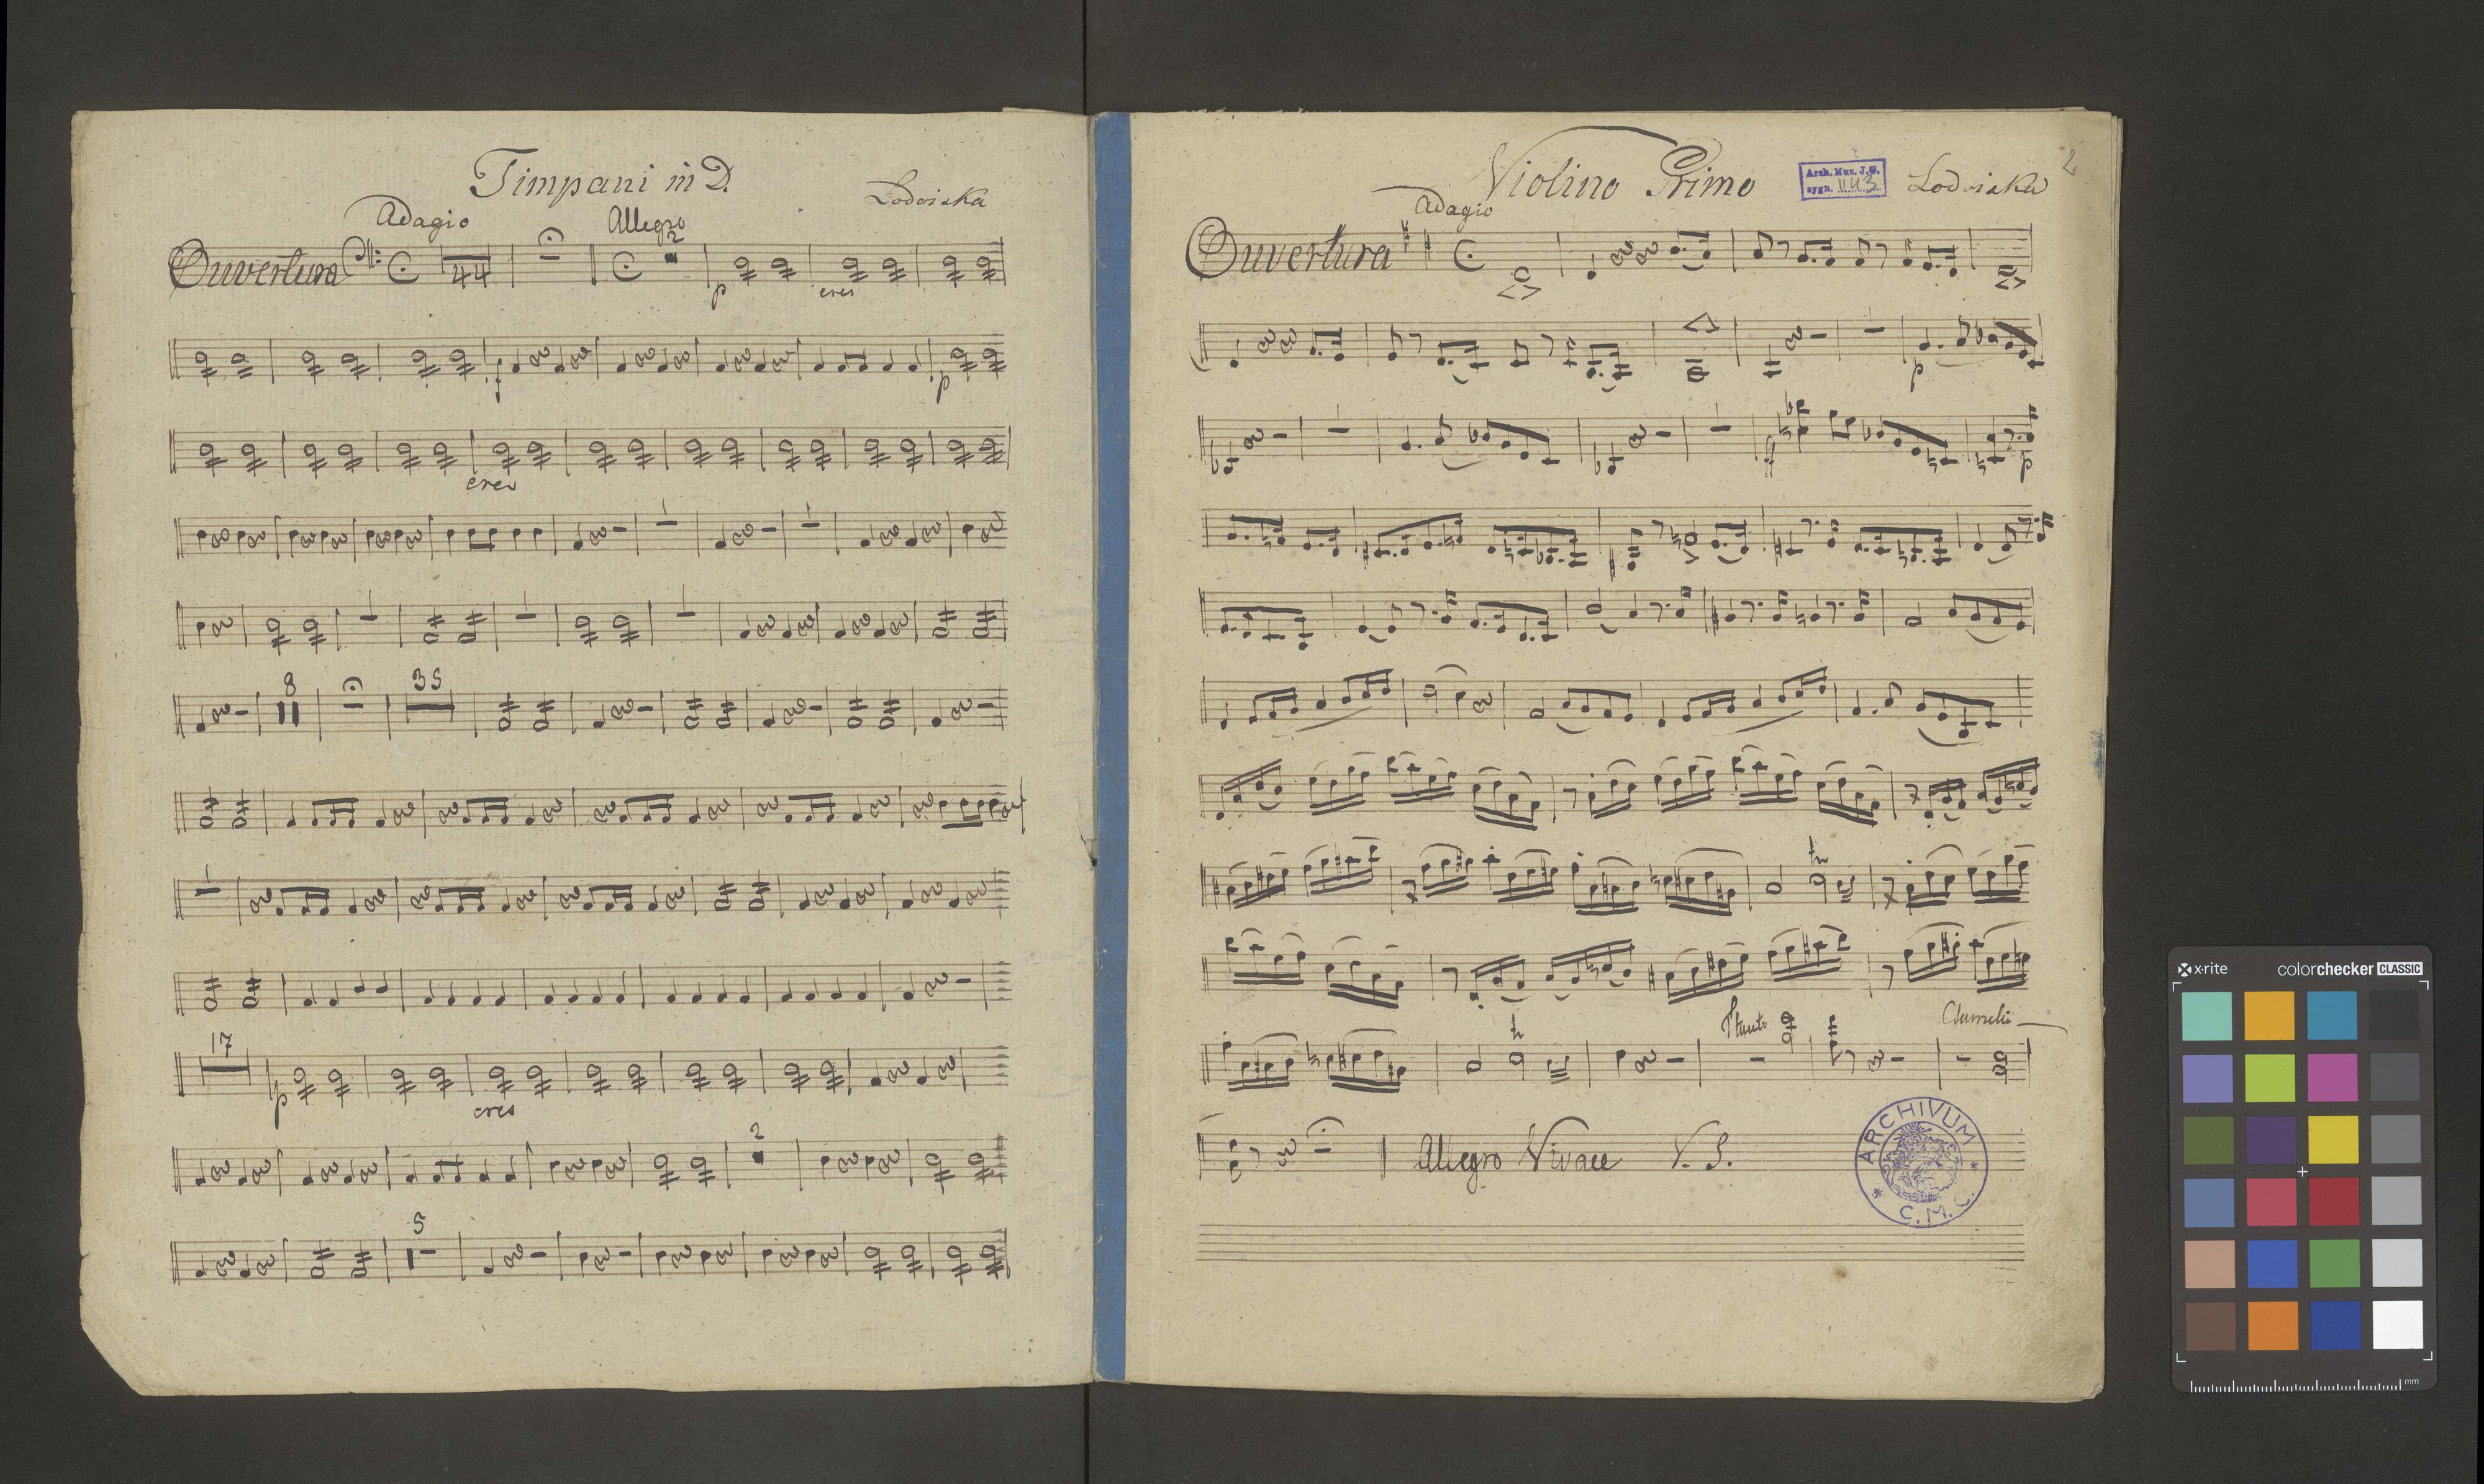 Timpani in D.
Lodoiska
Adagio
Allegro
Ouvertura
44
2
p
cres
f
p
cres
8
35
17
p
cres
2
5
Violino Primo
Arch. Mus. J. G.
sygn. 1143
Lodoiska
2
Adagio
Ouvertura
p
ff
p
tr
tr
Flauto
Allegro Vivace V. S.
ARCHIVUM
C. M. C.
x-rite
colorchecker CLASSIC
mm